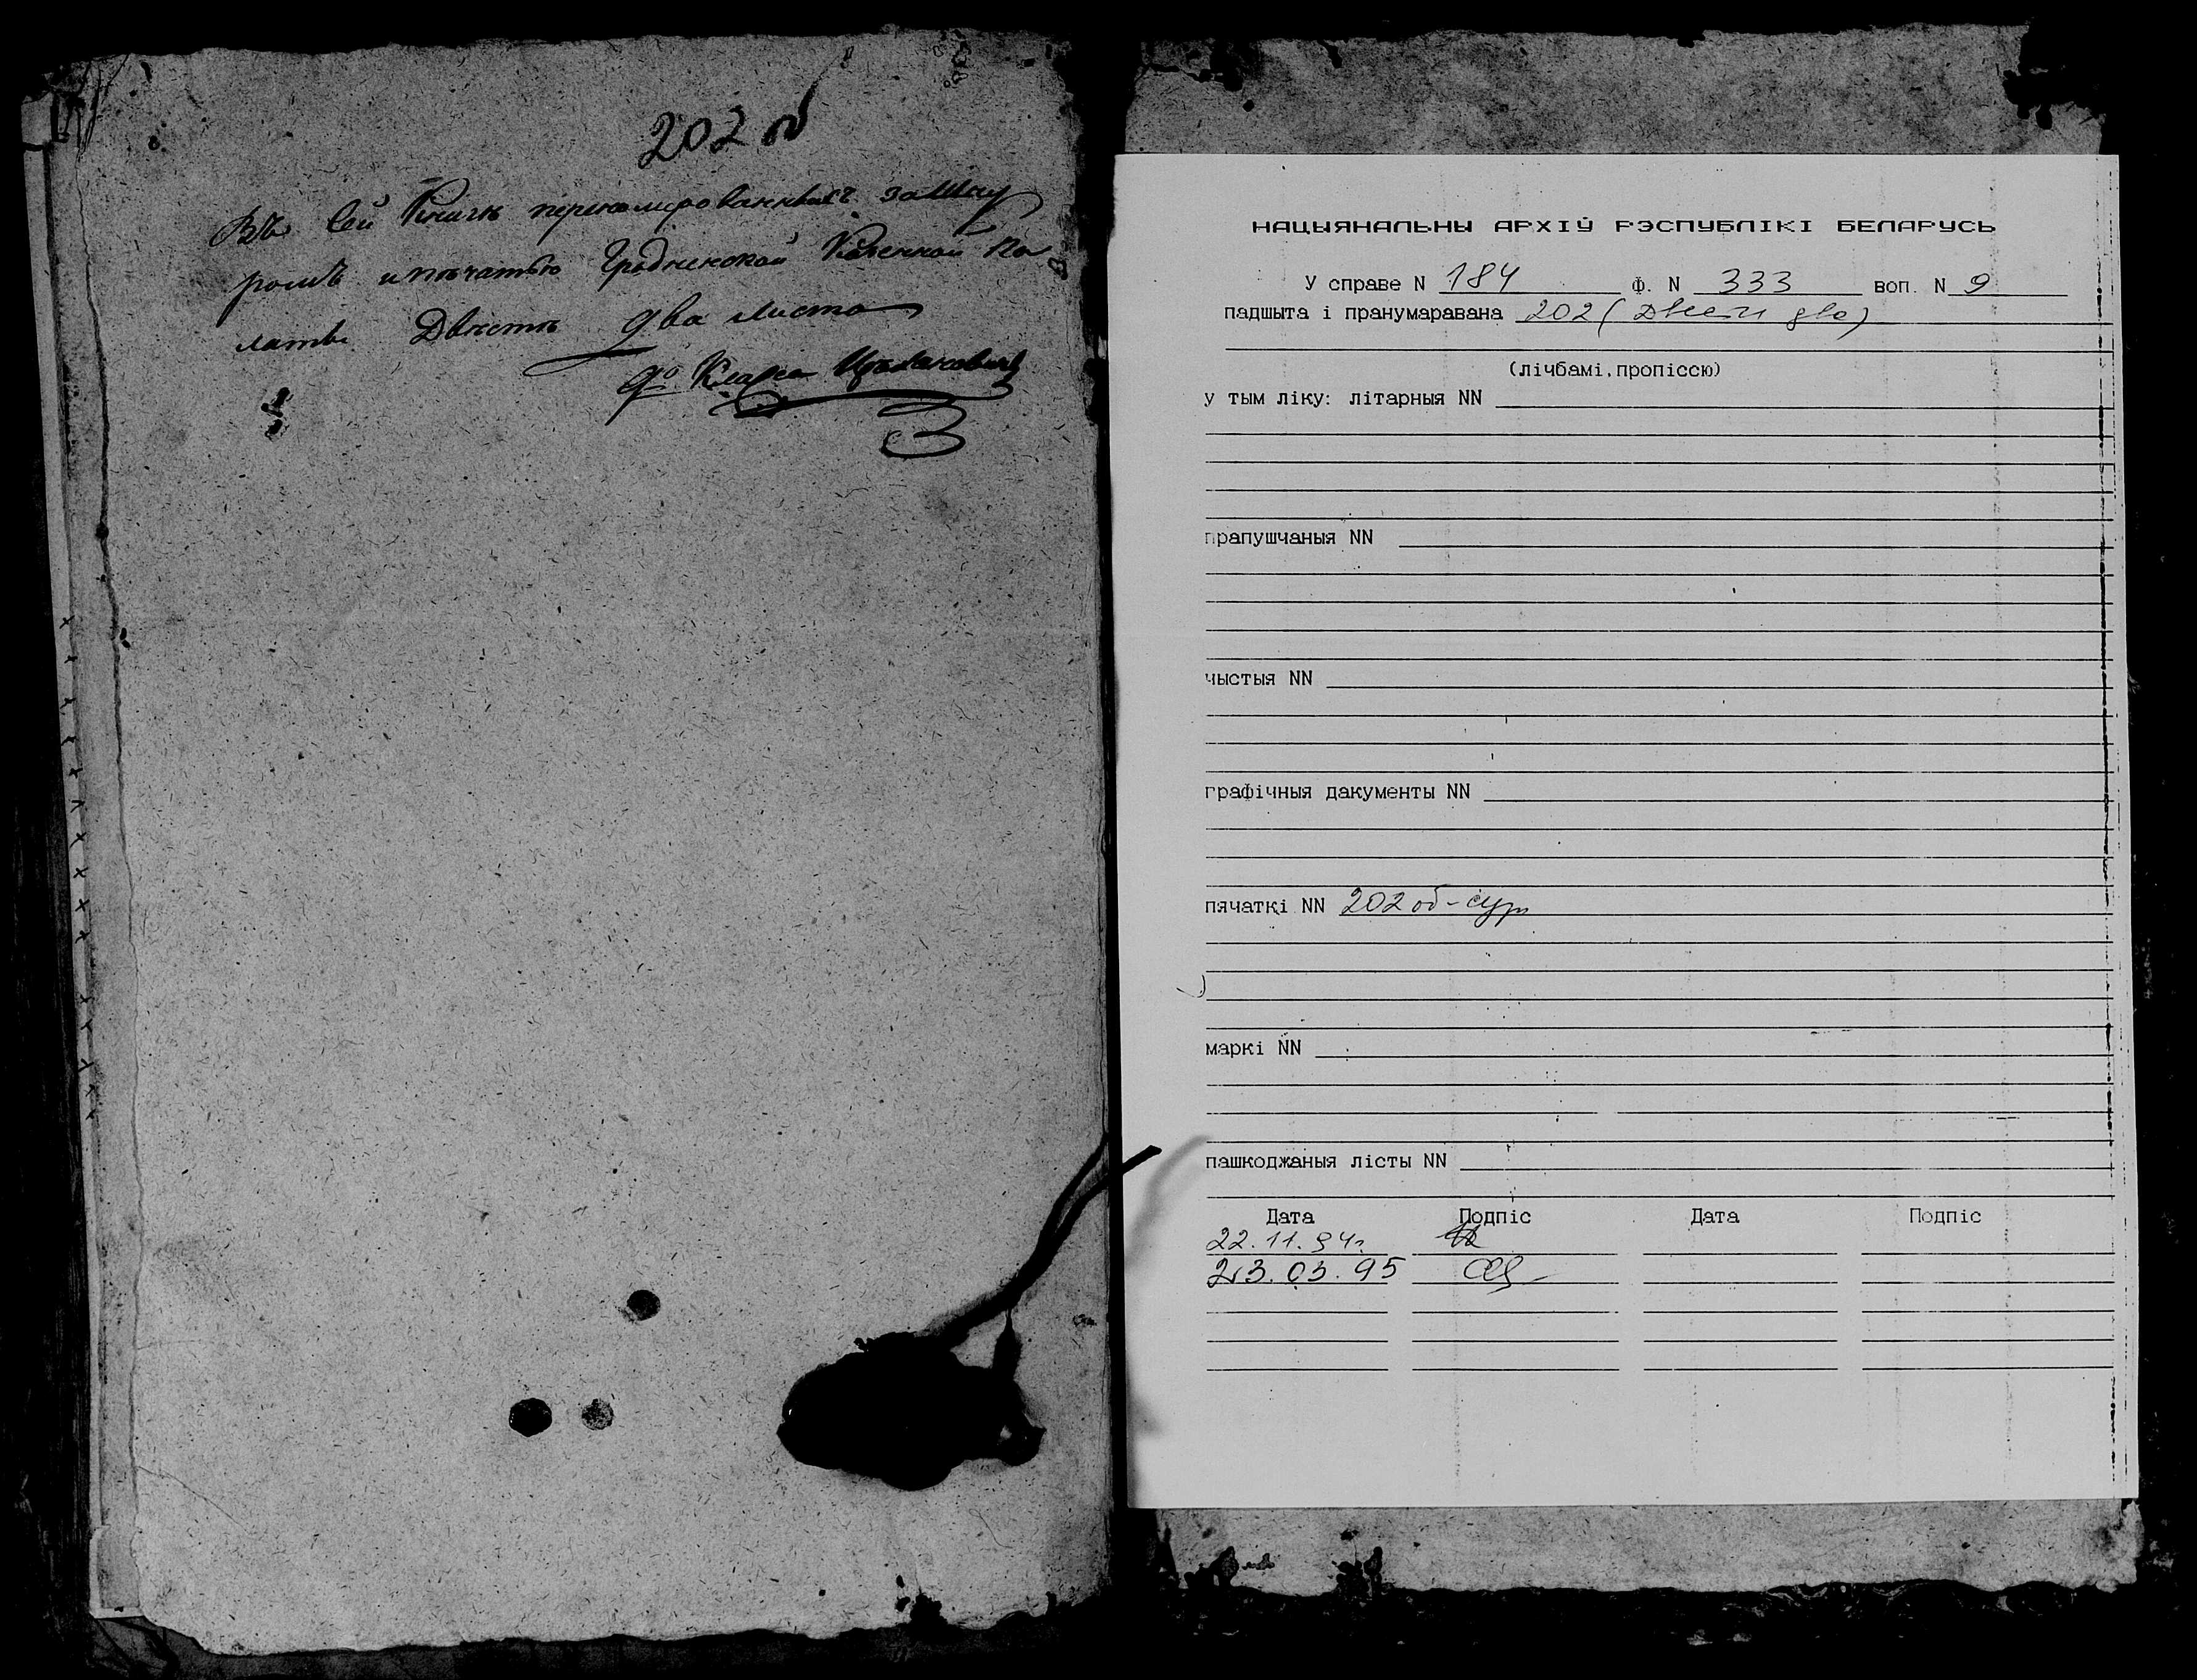 202 об
Въ сей Книгѣ перенумерованныхъ за шну
ромъ и печатью Гродненской Казенной Па
латы Двѣстѣ два листа
НАЦЫЯНАЛЬНЫ АРХІЎ РЭСПУБЛІКІ БЕЛАРУСЬ
У справе N 184 Ф. N 333 воп. N 9
падшыта і пранумаравана 202 (Двести два)
(лічбамі,пропіссю)
у тым ліку: літарныя NN
прапушчаныя NN
чыстыя NN
графічныя дакументы NN
пячаткі NN 202 об - сург
маркі NN
пашкоджаныя лісты NN
Дата Подпіс Дата Подпіс
22.11.94г.
23.03.95